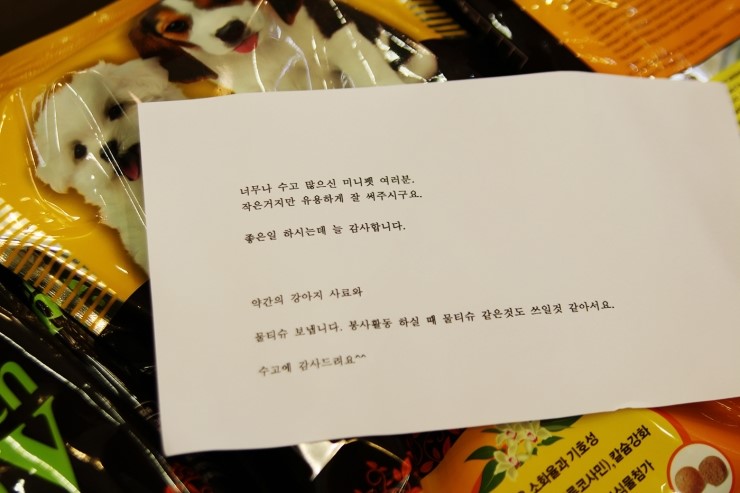 너무나 수고 많으신 미니펫 여러분.
작은거지만 유용하게 잘 써주시구요.
좋은일 하시는데 늘 감사합니다.
약간의 강아지 사료와
물티슈 보냅니다. 봉사활동 하실 때 물티슈 같은것도 쓰일것 같아서요.
수고에 감사드려요^^
소화율과 기호성
코사민), 칼슘강화
물첨가